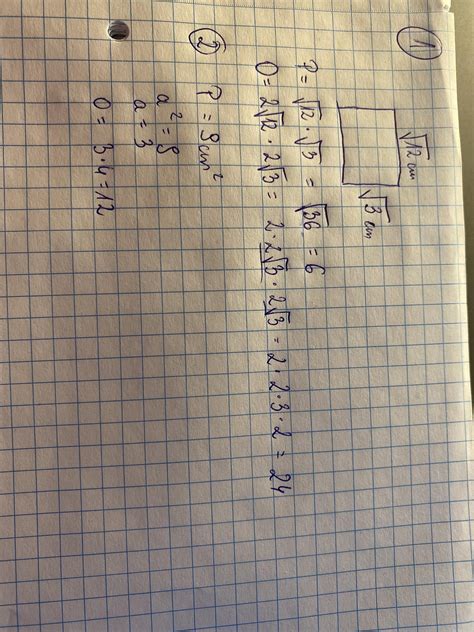 1
√12 cm
√3 cm
P = √12 · √3 = √36 = 6
O = 2√12 · 2√3 = 2 · 2√3 · 2√3 = 2 · 2 · 3 · 2 = 24
2
P = 9cm²
a² = 9
a = 3
O = 3·4=12